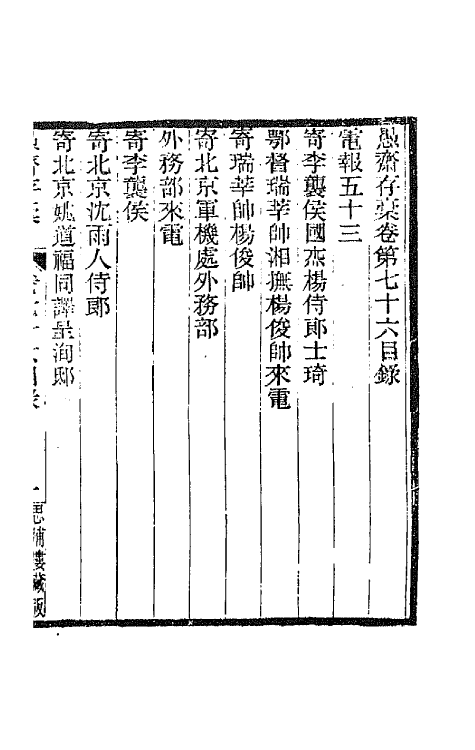 愚齋存稾卷第七十六目錄
電報五十三
寄李襲侯國杰楊侍郎士琦
鄂督瑞莘帥湘撫楊俊帥來電
寄瑞莘帥楊俊帥
寄北京軍機處外務部
外務部來電
寄李襲侯
寄北京沈雨人侍郎
寄北京姚道福同譯呈洵邸
愚齋存稾 卷七十六目錄 一 思補樓藏版